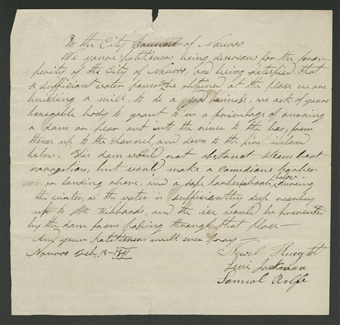 To the City Council of Nauvoo
We your petitioners being desirous for the pros-
perity of the City of Nauvoo, and being satisfied that
a sufficient water power be obtained at the place we are
building a mill to do a good business, we ask of your
honorable body to grant to us a privilege of erecting
a dam or pear out into the river to the bar, from
thence up to the channel, and down to the first island
below. This dam would not obstruct steam boat
navigation, but would make a harbor
or landing above, and a safe for boats during
the winter, as the water is sufficiently deep nearly
up to Mr Hibbards, and the ice would be prevented
by the dam from passing through that place
And your petitioners will ever pray
Nauvoo Feb. 18- Newel Knight
Levi Jackman
Samuel Rolfe